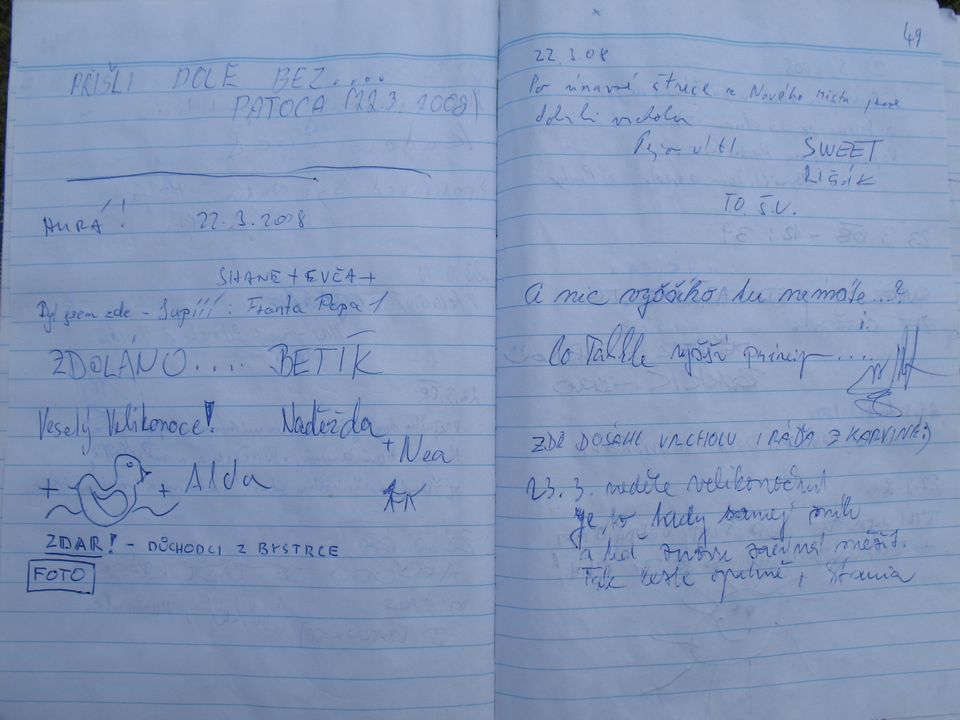 PŘIŠLI DOLE BEZ....
PATOCA (22.3. 2008)
HURÁ! 22.3.2008
SHANE + EVČA +
Byl jsem zde - Jupííí : Franta Pepa 1
ZDOLÁNO.... BETÍK
Veselý Velikonoce! Naděžda
+ Nea
+ + Alda
ZDAR! - DŮCHODCI Z BYSTRCE
FOTO
49
22.3.08
Po únavné z Nového Města jsme
vrcholu
SWEET
RIŠÍK
TO Š.V.
A nic vyššího tu nemáte...?
Co vyšší princip ....
ZDE DOSÁHL VRCHOLU I RÁĎA Z KARVINÉ:)
23.3. neděle velikonoční
je to tady samej sníh
a teď znovu začíná sněžit.
Tak opatrně,